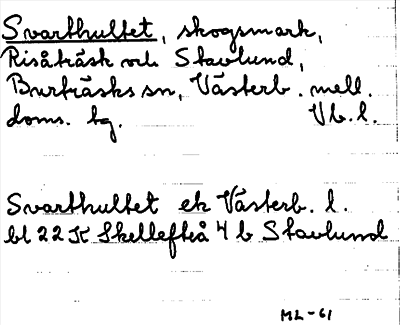 Svarthultet, skogsmark,
Risåträsk och Stavlund,
Burträsks sn, Västerb. mell.
doms. hg. Vb. l.
Svarthultet ek Västerb. l.
bl 22 K Skellefteå 4 b Stavlund
ML-61